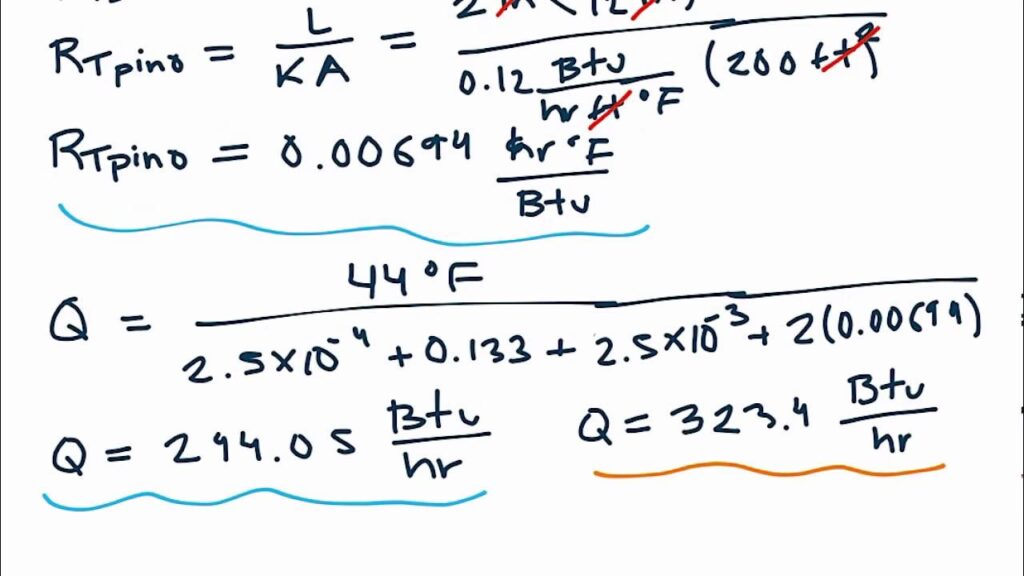 R_Tpino = L / KA = 2 / 0.12 Btu / hr ft °F (200 ft²)
R_Tpino = 0.00694 hr °F / Btu
Q = 44 °F / 2.5×10⁻⁴ + 0.133 + 2.5×10⁻³ + 2(0.00694)
Q = 294.05 Btu / hr Q = 323.4 Btu / hr